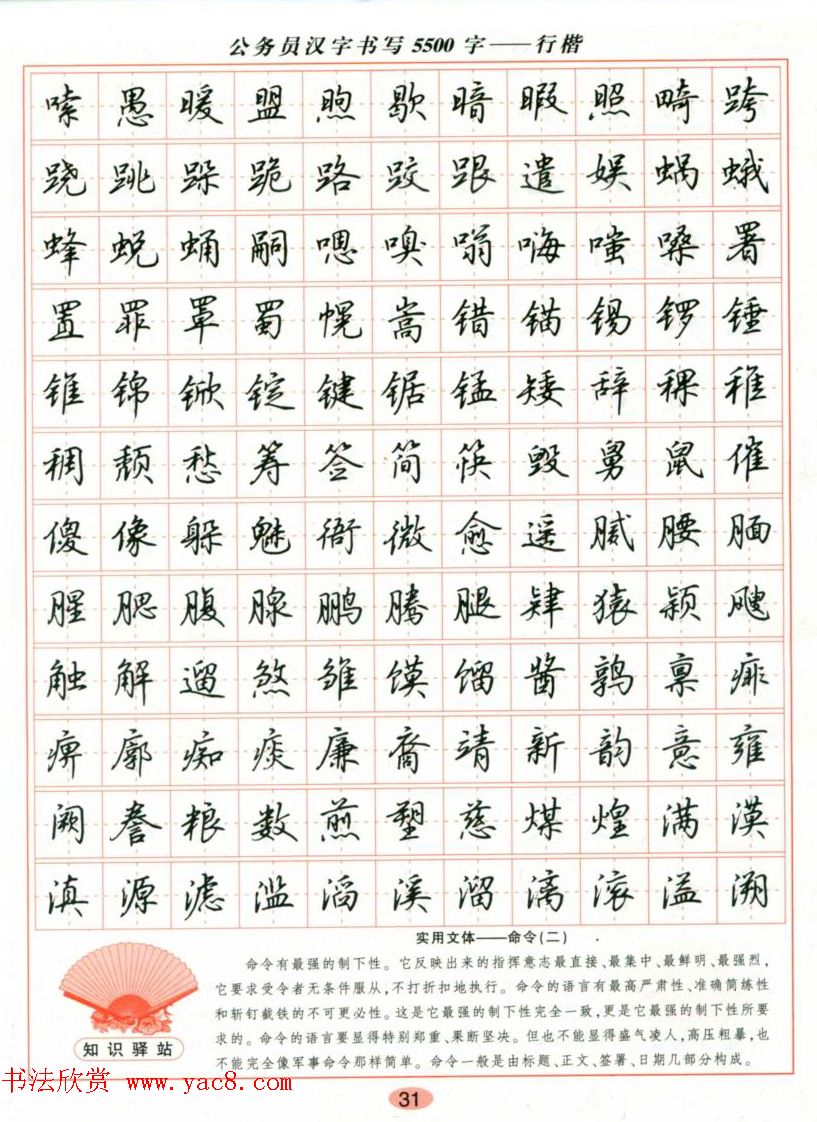 公务员汉字书写5500字——行楷
嗉愚暖盟煦歇暗暇照畸跨
跷跳跺跪路跤跟遣娱蜗蛾
蜂蜕蛹嗣嗯嗅嗡嗨嗤嗓署
置罪罩蜀幌嵩错锚锡锣锤
锥锦锨锭键锯锰矮辞稞稚
稠颓愁筹签简筷毁舅鼠催
傻像躲魅衙微愈遥腻腰腼
腥腮腹腺鹏腾腿肄猿颖飕
触解遛煞雏馍馏酱鹑禀痱
痹廓痴痰廉裔靖新韵意雍
阙誊粮数煎塑慈煤煌满漠
滇源滤滥滔溪溜漓滚溢溯
实用文体——命令(二)
命令有最强的制下性。它反映出来的指挥意志最直接、最集中、最鲜明、最强烈,
它要求受令者无条件服从,不打折扣地执行。命令的语言有最高严肃性、准确简练性
和斩钉截铁的不可更必性。这是它最强的制下性完全一致,更是它最强的制下性所要
求的。命令的语言要显得特别郑重、果断坚决。但也不能显得盛气凌人,高压粗暴,也
不能完全像军事命令那样简单。命令一般是由标题、正文、签署、日期几部分构成。
知识驿站
书法欣赏 www.yac8.com
31